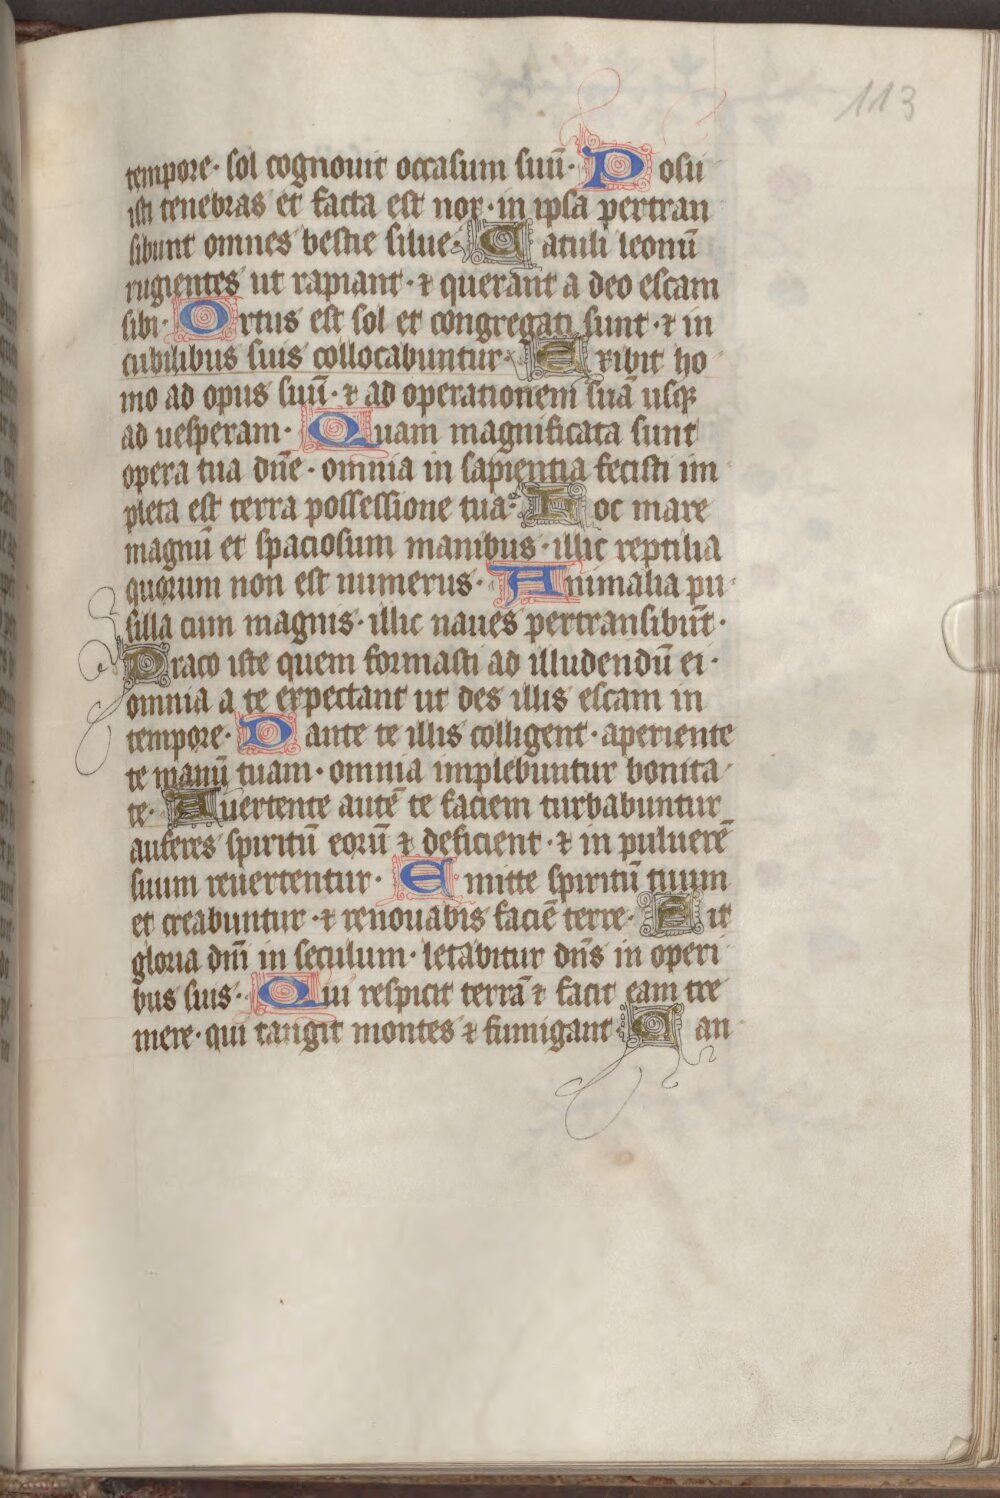 113
tempore· sol cognouit occasum suū· Posui
isti tenebras et facta est nox· in ipsa pertran
sibunt omnes bestie silue· Catuli leonū
rugientes ut rapiant· ⁊ querant a deo escam
sibi· Ortus est sol et congregati sunt· ⁊ in
cubilibus suis collocabuntur· Exibit ho
mo ad opus suū· ⁊ ad operationem suā usqꝫ
ad uesperam· Quam magnificata sunt
opera tua dn̄e· omnia in sapientia fecisti im
pleta est terra possessione tua· Hoc mare
magnū et spaciosum manibus· illic reptilia
quorum non est numerus· Animalia pu
silla cum magnis· illic naues pertransibūt·
Draco iste quem formasti ad illudendū ei·
omnia a te expectant ut des illis escam in
tempore· Dante te illis colligent· aperiente
te manū tuam· omnia implebuntur bonita
te· Auertente autē te faciem turbabuntur
auferes spiritū eorū ⁊ deficient· ⁊ in puluerē
suum reuertentur· Emitte spiritū tuum
et creabuntur· ⁊ renouabis faciē terre· Sit
gloria dn̄i in seculum· letabitur dn̄s in operi
bus suis· Qui respicit terrā ⁊ facit eam tre
mere· qui tangit montes ⁊ fumigant· Can